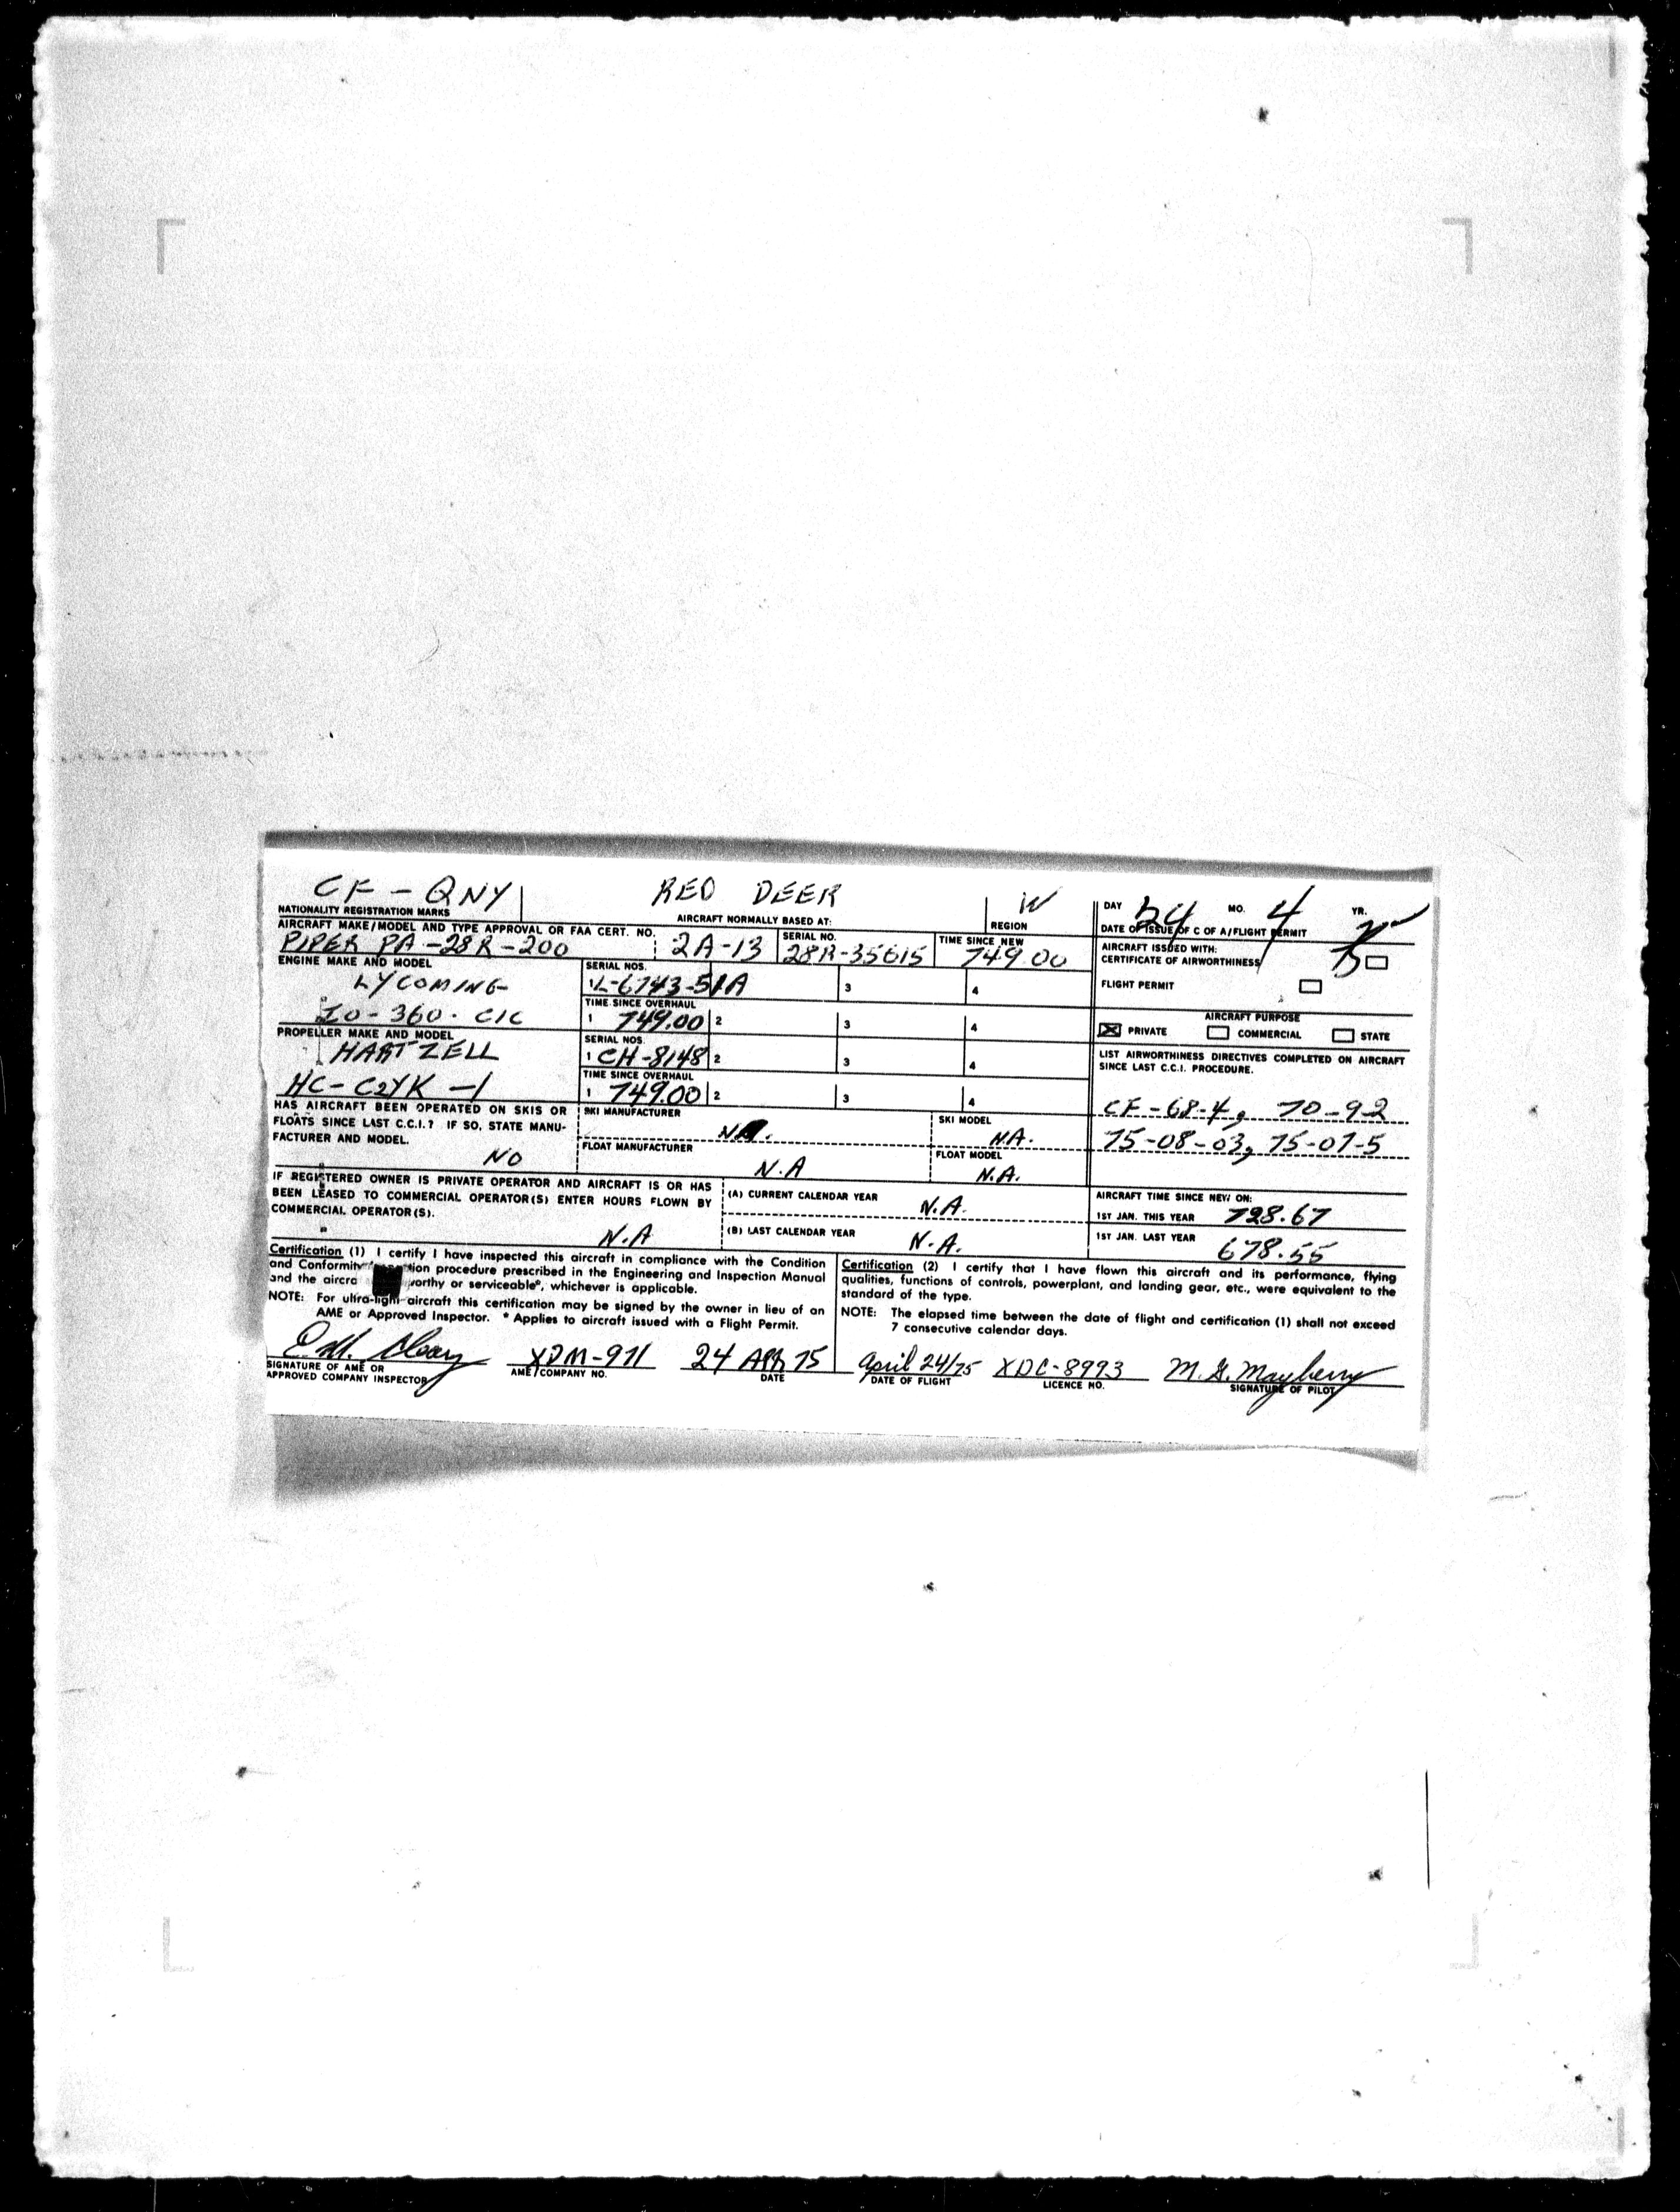 CF - QNY RED DEER W DAY 24 MO. 4 YR. 75
NATIONALITY REGISTRATION MARKS AIRCRAFT NORMALLY BASED AT: REGION DATE OF ISSUE OF C OF A/FLIGHT PERMIT
AIRCRAFT MAKE/MODEL AND TYPE APPROVAL OR FAA CERT. NO. SERIAL NO. TIME SINCE NEW
PIPER PA-28R-200 2A-13 28R-35615 749.00
AIRCRAFT ISSUED WITH:
CERTIFICATE OF AIRWORTHINESS
FLIGHT PERMIT
ENGINE MAKE AND MODEL SERIAL NOS.
LYCOMING L-6743-51A 3 4
TIME SINCE OVERHAUL
IO-360-C1C 1 749.00 2 3 4
AIRCRAFT PURPOSE
PRIVATE COMMERCIAL STATE
PROPELLER MAKE AND MODEL SERIAL NOS.
HARTZELL 1 CH-8148 2 3 4
TIME SINCE OVERHAUL
HC-C2YK-1 1 749.00 2 3 4
LIST AIRWORTHINESS DIRECTIVES COMPLETED ON AIRCRAFT
SINCE LAST C.C.I. PROCEDURE.
CF-68-4, 70-9-2
75-08-03, 75-07-5
HAS AIRCRAFT BEEN OPERATED ON SKIS OR
FLOATS SINCE LAST C.C.I.? IF SO, STATE MANU-
FACTURER AND MODEL.
NO
SKI MANUFACTURER SKI MODEL
NA. NA.
FLOAT MANUFACTURER FLOAT MODEL
N.A N.A.
IF REGISTERED OWNER IS PRIVATE OPERATOR AND AIRCRAFT IS OR HAS
BEEN LEASED TO COMMERCIAL OPERATOR(S) ENTER HOURS FLOWN BY
COMMERCIAL OPERATOR(S).
N.A
(A) CURRENT CALENDAR YEAR N.A.
(B) LAST CALENDAR YEAR N.A.
AIRCRAFT TIME SINCE NEW ON:
1ST JAN. THIS YEAR 728.67
1ST JAN. LAST YEAR 678.55
Certification (1) I certify I have inspected this aircraft in compliance with the Condition
and Conformity procedure prescribed in the Engineering and Inspection Manual
and the or serviceable*, whichever is applicable.
NOTE: For ultra-light aircraft this certification may be signed by the owner in lieu of an
AME or Approved Inspector. * Applies to aircraft issued with a Flight Permit.
Certification (2) I certify that I have flown this aircraft and its performance, flying
qualities, functions of controls, powerplant, and landing gear, etc., were equivalent to the
standard of the type.
NOTE: The elapsed time between the date of flight and certification (1) shall not exceed
7 consecutive calendar days.
XDM-971 24 APR 75 April 24/75 XDC-8993 M. G. Mayberry
SIGNATURE OF AME OR
APPROVED COMPANY INSPECTOR AME/COMPANY NO. DATE DATE OF FLIGHT LICENCE NO. SIGNATURE OF PILOT